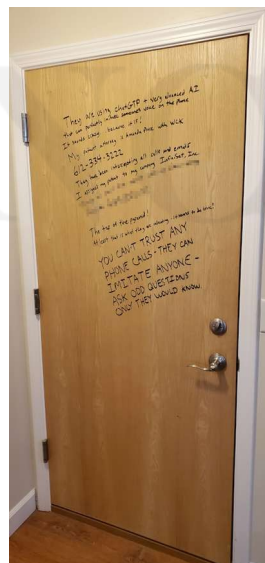 They are using ChatGTP + very advanced AI
that can perfectly imitate someones voice on the phone
It sounds exactly because it is!
My patent attorney is Amanda Prose with WCK
612-334-3222
They have been intercepting all calls and emails
I assigned my patent to my company InfiniSet, Inc.
The top of the pyramid!
At least that is what they are claiming
YOU CAN'T TRUST ANY
PHONE CALLS - THEY CAN
IMITATE ANYONE -
ASK ODD QUESTIONS
ONLY THEY WOULD KNOW